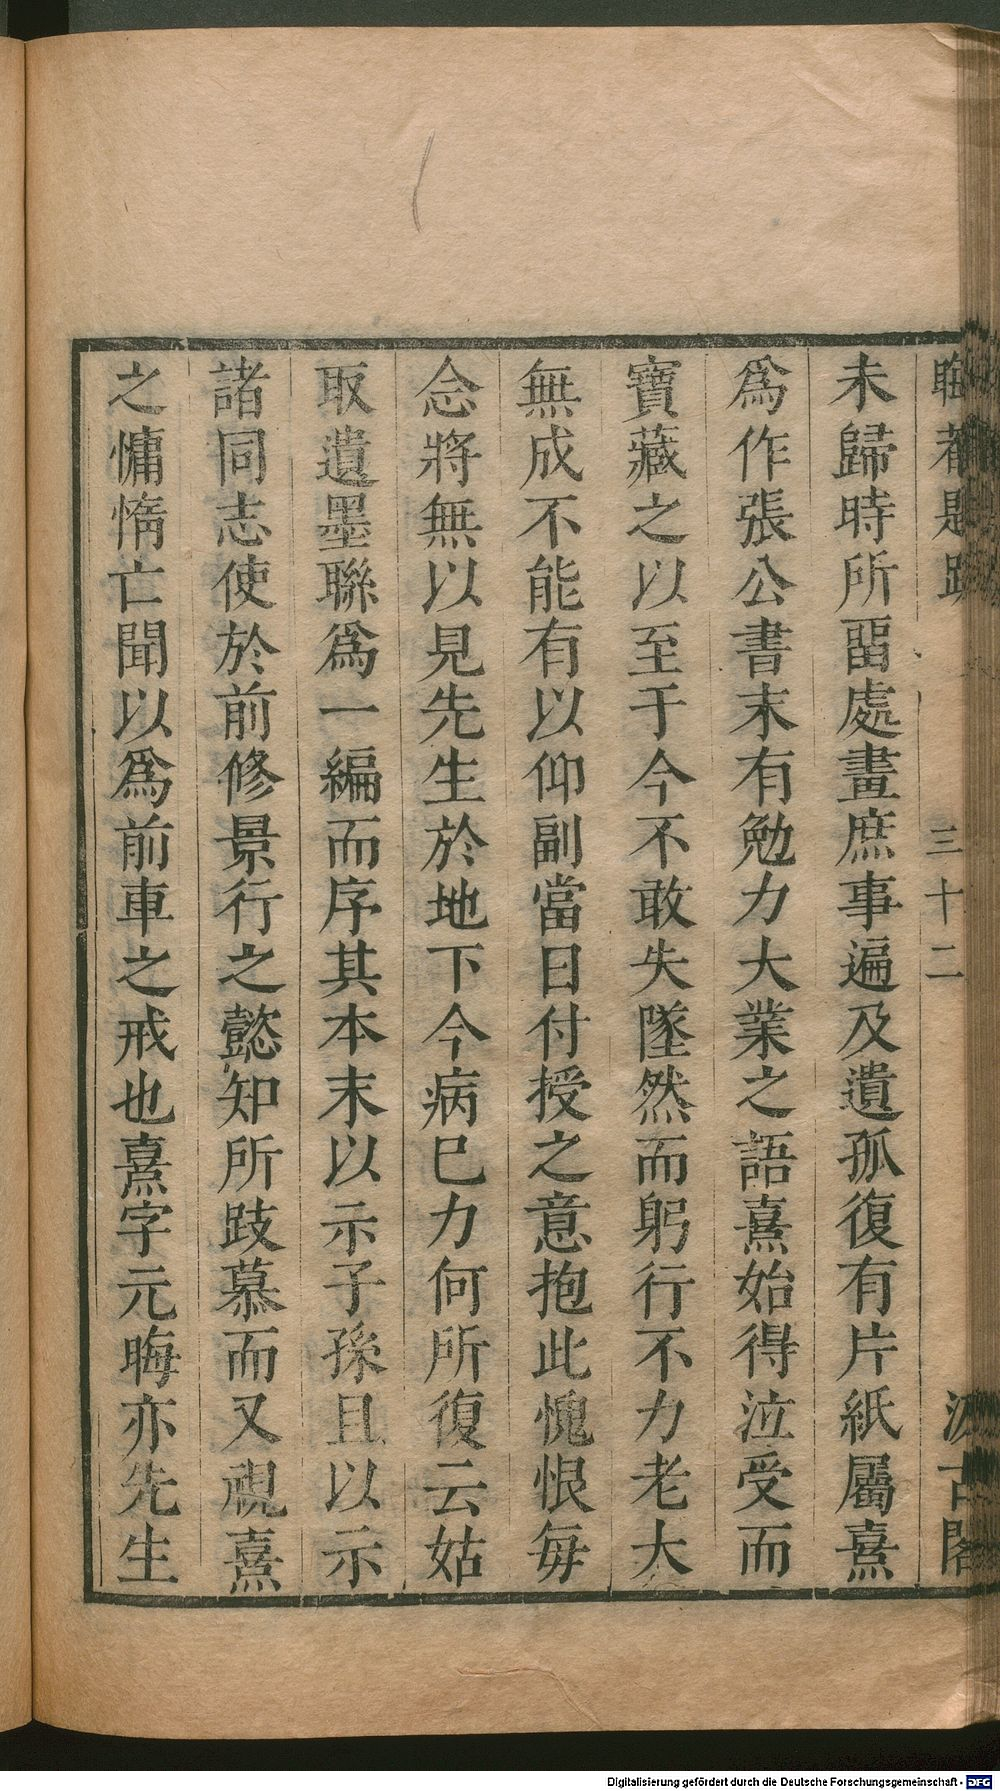 晦菴題跋 三十二 汲古閣
未歸時所畱處畫庶事遍及遺孤復有片紙屬熹
爲作張公書末有勉力大業之語熹始得泣受而
寶藏之以至于今不敢失墜然而躬行不力老大
無成不能有以仰副當日付授之意抱此愧恨每
念將無以見先生於地下今病巳力何所復云姑
取遺墨聯爲一編而序其本末以示子孫且以示
諸同志使於前修景行之懿知所跂慕而又視熹
之慵惰亡聞以爲前車之戒也熹字元晦亦先生
Digitalisierung gefördert durch die Deutsche Forschungsgemeinschaft - DFG